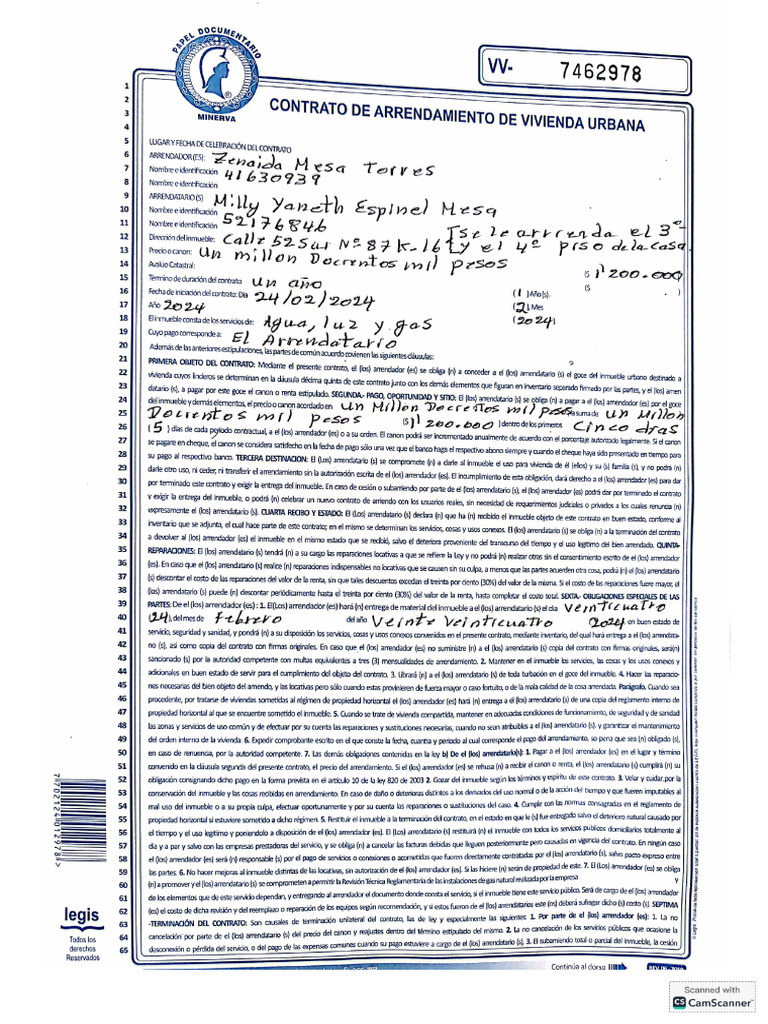 PAPEL DOCUMENTARIO
MINERVA
VV- 7462978
CONTRATO DE ARRENDAMIENTO DE VIVIENDA URBANA
LUGAR Y FECHA DE CELEBRACIÓN DEL CONTRATO
ARRENDADOR (ES): Zenaida Mesa Torres
Nombre e identificación 41630939
Nombre e identificación
ARRENDATARIO (S) Milly Yaneth Espinel Mesa
Nombre e identificación
Nombre e identificación 52176846 [se le arrienda el 3º
Dirección del inmueble: Calle 52 Sur Nº 87K-16 [y el 4º piso de la casa
Precio o canon: Un millon Docientos mil pesos
Avalúo Catastral: ($ 1'200.000)
Término de duración del contrato un año ($ )
Fecha de iniciación del contrato: Día 24/02/2024 (1) Año(s).
Año 2024 (2) Mes
El inmueble consta de los servicios de: Agua, luz y gas (2024)
Cuyo pago corresponde a: El Arrendatario
Además de las anteriores estipulaciones, las partes de común acuerdo covienen las siguientes cláusulas:
PRIMERA OBJETO DEL CONTRATO: Mediante el presente contrato, el (los) arrendador (es) se obliga (n) a conceder a el (los) arrendatario (s) el goce del inmueble urbano destinado a
vivienda cuyos linderos se determinan en la cláusula décima quinta de este contrato junto con los demás elementos que figuran en inventario separado firmado por las partes, y el (los) arren
datario (s), a pagar por este goce el canon o renta estipulado. SEGUNDA.- PAGO, OPORTUNIDAD Y SITIO: El (los) arrendatario (s) se obliga (n) a pagar a el (los) arrendador (es) por el goce
del inmueble y demás elementos, el precio o canon acordado en un Millon Docientos mil pesos la suma de un Millon
Docientos mil pesos ($ 1'200.000) dentro de los primeros Cinco dias
(5) días de cada período contractual, a el (los) arrendador (es) o a su orden. El canon podrá ser incrementado anualmente de acuerdo con el porcentaje autorizado legalmente. Si el canon
se pagare en cheque, el canon se considera satisfecho en la fecha de pago sólo una vez que el banco haga el respectivo abono siempre y cuando el cheque haya sido presentado en tiempo para
su pago al respectivo banco. TERCERA DESTINACION: El (Los) arrendatario (s) se compromete (n) a darle al inmueble el uso para vivienda de él (ellos) y su (s) familia (s), y no podrá (n)
darle otro uso, ni ceder, ni transferir el arrendamiento sin la autorización escrita de el (los) arrendador (es). El incumplimiento de esta obligación, dará derecho a el (los) arrendador (es) para dar
por terminado este contrato y exigir la entrega del inmueble. En caso de cesión o subarriendo por parte de el (los) arrendatario (s), el (los) arrendador (es) podrá dar por terminado el contrato
y exigir la entrega del inmueble, o podrá (n) celebrar un nuevo contrato de arriendo con los usuarios reales, sin necesidad de requerimientos judiciales o privados a los cuales renuncia (n)
expresamente el (los) arrendatario (s). CUARTA RECIBO Y ESTADO: El (Los) arrendatario (s) declara (n) que ha (n) recibido el inmueble objeto de este contrato en buen estado, conforme al
inventario que se adjunta, el cual hace parte de este contrato; en el mismo se determinan los servicios, cosas y usos conexos. El (los) arrendatario (s) se obliga (n) a la terminación del contrato
a devolver al (los) arrendador (es) el inmueble en el mismo estado que se recibió, salvo el deterioro proveniente del transcurso del tiempo y el uso legítimo del bien arrendado. QUINTA-
REPARACIONES: El (los) arrendatario (s) tendrá (n) a su cargo las reparaciones locativas a que se refiere la Ley y no podrá (n) realizar otras sin el consentimiento escrito de el (los) arrendador
(es). En caso que el (los) arrendatario (s) realice (n) reparaciones indispensables no locativas que se causen sin su culpa, a menos que las partes acuerden otra cosa, podrá (n) el (los) arrendatario
(s) descontar el costo de las reparaciones del valor de la renta, sin que tales descuentos excedan el treinta por ciento (30%) del valor de la misma. Si el costo de las reparaciones fuere mayor, el
(los) arrendatario (s) puede (n) descontar periódicamente hasta el treinta por ciento (30%) del valor de la renta, hasta completar el costo total. SEXTA.- OBLIGACIONES ESPECIALES DE LAS
PARTES: De el (los) arrendador (es) : 1. El(Los) arrendador (es) hará (n) entrega de material del inmueble a el (los) arrendatario (s) el día veinticuatro
(24), del mes de febrero del año veinte veinticuatro 2024 en buen estado de
servicio, seguridad y sanidad, y pondrá (n) a su disposición los servicios, cosas y usos conexos convenidos en el presente contrato, mediante inventario, del cual hará entrega a el (los) arrendata-
no (s), así como copia del contrato con firmas originales. En caso que el (los) arrendador (es) no suministre (n) a el (los) arrendatario (s) copia del contrato con firmas originales, será(n)
sancionado (s) por la autoridad competente con multas equivalentes a tres (3) mensualidades de arrendamiento. 2. Mantener en el inmueble los servicios, las cosas y los usos conexos y
adicionales en buen estado de servir para el cumplimiento del objeto del contrato. 3. Librará (n) a el (los) arrendatario (s) de toda turbación en el goce del inmueble. 4. Hacer las reparacio-
nes necesarias del bien objeto del arriendo, y las locativas pero sólo cuando estas provinieren de fuerza mayor o caso fortuito, o de la mala calidad de la cosa arrendada. Parágrafo. Cuando sea
procedente, por tratarse de viviendas sometidas al régimen de propiedad horizontal el (los) arrendador (es) hará (n) entrega a el (los) arrendatario (s) de una copia del reglamento interno de
propiedad horizontal al que se encuentre sometido el inmueble. 5. Cuando se trate de vivienda compartida, mantener en adecuadas condiciones de funcionamiento, de seguridad y de sanidad
las zonas y servicios de uso común y de efectuar por su cuenta las reparaciones y sustituciones necesarias, cuando no sean atribuibles a el (los) arrendatario (s), y garantizar el mantenimiento
del orden interno de la vivienda. 6. Expedir comprobante escrito en el que conste la fecha, cuantía y periodo al cual corresponde el pago del arrendamiento, so pena que sea (n) obligado (s),
en caso de renuencia, por la autoridad competente. 7. Las demás obligaciones contenidas en la ley b) De el (los) arrendatario(s): 1. Pagar a el (los) arrendador (es) en el lugar y término
convenido en la cláusula segunda del presente contrato, el precio del arrendamiento. Si el (los) arrendador (es) se rehusa (n) a recibir el canon o renta, el (los) arrendatario (s) cumplirá (n) su
obligación consignando dicho pago en la forma prevista en el artículo 10 de la ley 820 de 2003 2. Gozar del inmueble según los términos y espíritu de este contrato. 3. Velar y cuidar por la
conservación del inmueble y las cosas recibidas en arrendamiento. En caso de daño o deterioros distintos a los derivados del uso normal o de la acción del tiempo y que fueren imputables al
mal uso del inmueble o a su propia culpa, efectuar oportunamente y por su cuenta las reparaciones o sustituciones del caso. 4. Cumplir con las normas consagradas en el reglamento de
propiedad horizontal si estuviere sometido a dicho régimen. 5. Restituir el inmueble a la terminación del contrato, en el estado en que le (s) fue entregado salvo el deterioro natural causado por
el tiempo y el uso legítimo y poniendolo a disposición de el (los) arrendador (es). El (Los) arrendatario (s) restituirá (n) el inmueble con todos los servicios públicos domiciliarios totalmente al
día y a paz y salvo con las empresas prestadoras del servicio, y se obliga (n) a cancelar las facturas debidas que lleguen posteriormente pero causadas en vigencia del contrato. En ningún caso
el (los) arrendador (es) será (n) responsable (s) por el pago de servicios o conexiones o acometidas que fueren directamente contratadas por el (los) arrendatario (s), salvo pacto expreso entre
las partes. 6. No hacer mejoras al inmueble distintas de las locativas, sin autorización de el (los) arrendador (es). Si las hiciere (n) serán de propiedad de este. 7. El (los) arrendador (es) se obliga
(n) a promover y el (los) arrendatario (s) se comprometen a permitir la Revisión Técnica Reglamentaria de las instalaciones de gas natural realizada por la empresa y
de los elementos que de este servicio dependan, y entregando al arrendador el documento donde consta el servicio, si el inmueble tiene este servicio público. Será de cargo de el (los) arrendador
(es) el costo de dicha revisión y del reemplazo o reparación de los equipos según recomendación, y si estos fueron de el (los) arrendatarios este (os) deberá sufragar dicho (s) costo (s). SEPTIMA
-TERMINACIÓN DEL CONTRATO: Son causales de terminación unilateral del contrato, las de ley y especialmente las siguientes: 1. Por parte de el (los) arrendador (es): 1. La no
cancelación por parte de el (los) arrendatario (s) del precio del canon y reajustes dentro del término estipulado del mismo. 2. La no cancelación de los servicios públicos que ocasione la
desconexión o pérdida del servicio, o del pago de las expensas comunes cuando su pago estuviere a cargo de el (los) arrendatario (s). 3. El subarriendo total o parcial del inmueble, la cesión
Continúa al dorso
77021240129784>
legis
Todos los
derechos
Reservados
Scanned with
CS CamScanner